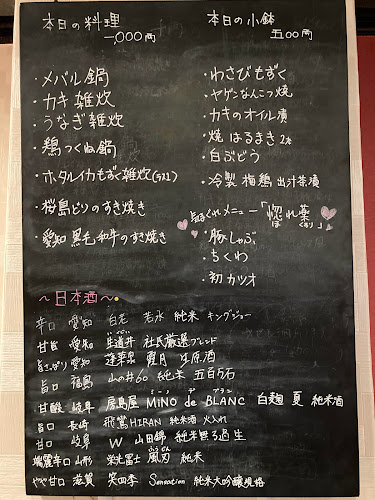 本日の料理
1,000円
・メバル鍋
・カキ雑炊
うなぎ雑炊
・鶏つくね鍋
・ホタルイカもずく雑炊(ラスト)
・桜島どりのすき焼き
・愛知黒毛和牛のすき焼き
本日の小鉢
五00円
・わさびもずく
・ヤゲンなんこつ焼
・カキのオイル漬
・焼はるまき2本
・白ぶどう
・冷製 梅鶏 出汁茶漬
メニュー「惚れ薬」
ほ ぐすり
・豚しゃぶ
・ちくわ
・初カツオ
～日本酒～
辛口 愛知 白老 若水 純米 キングジョー
甘旨 愛知 生道井 杜氏厳選ブレンド
愛知 蓬莱泉 夏月 生原酒
旨口 福島 山の井60 純米 五百万石
甘酸 岐阜 房島屋 MiNO de BLANC 白麹 夏 純米酒
旨口 長崎 飛鸞 HIRAN 純米酒 火入れ
甘口 岐阜 W 山田錦 純米無ろ過生
端麗辛口 山形 栄光冨士 風刃 純米
やや甘口 滋賀 笑四季 Sensation 純米大吟醸規格